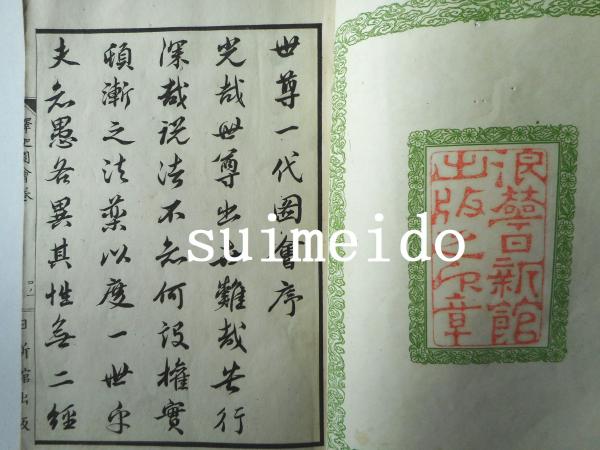 浪華日新館
出版之印章
世尊一代圖會序
光哉世尊出世難哉苦行
深哉説法不知何設権實
頓漸之法藥以度一世乎
夫知愚各異其性無二經
日新館出版
suimeido